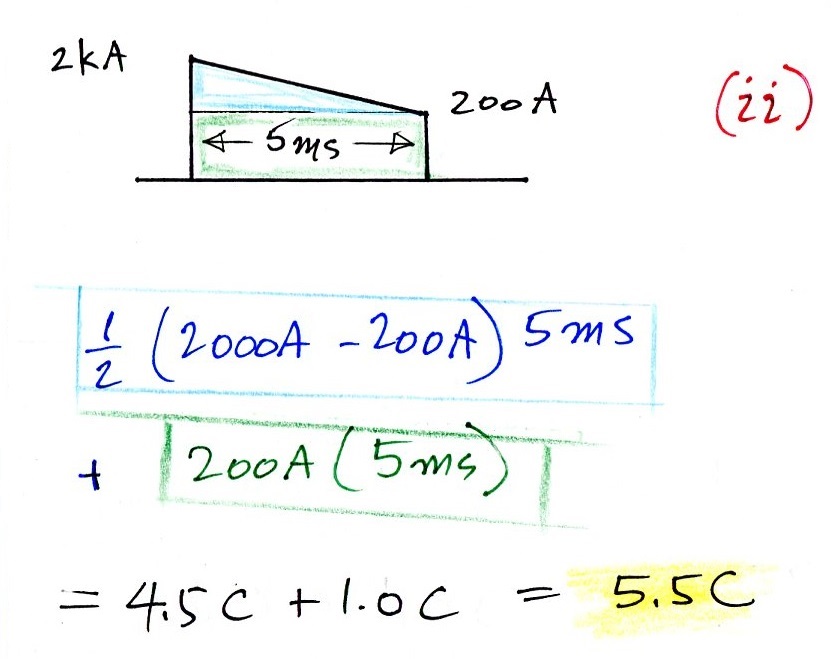 2kA
200A
(ii)
5ms
1/2 (2000A - 200A) 5ms
+ 200A (5ms)
= 4.5C + 1.0C = 5.5C